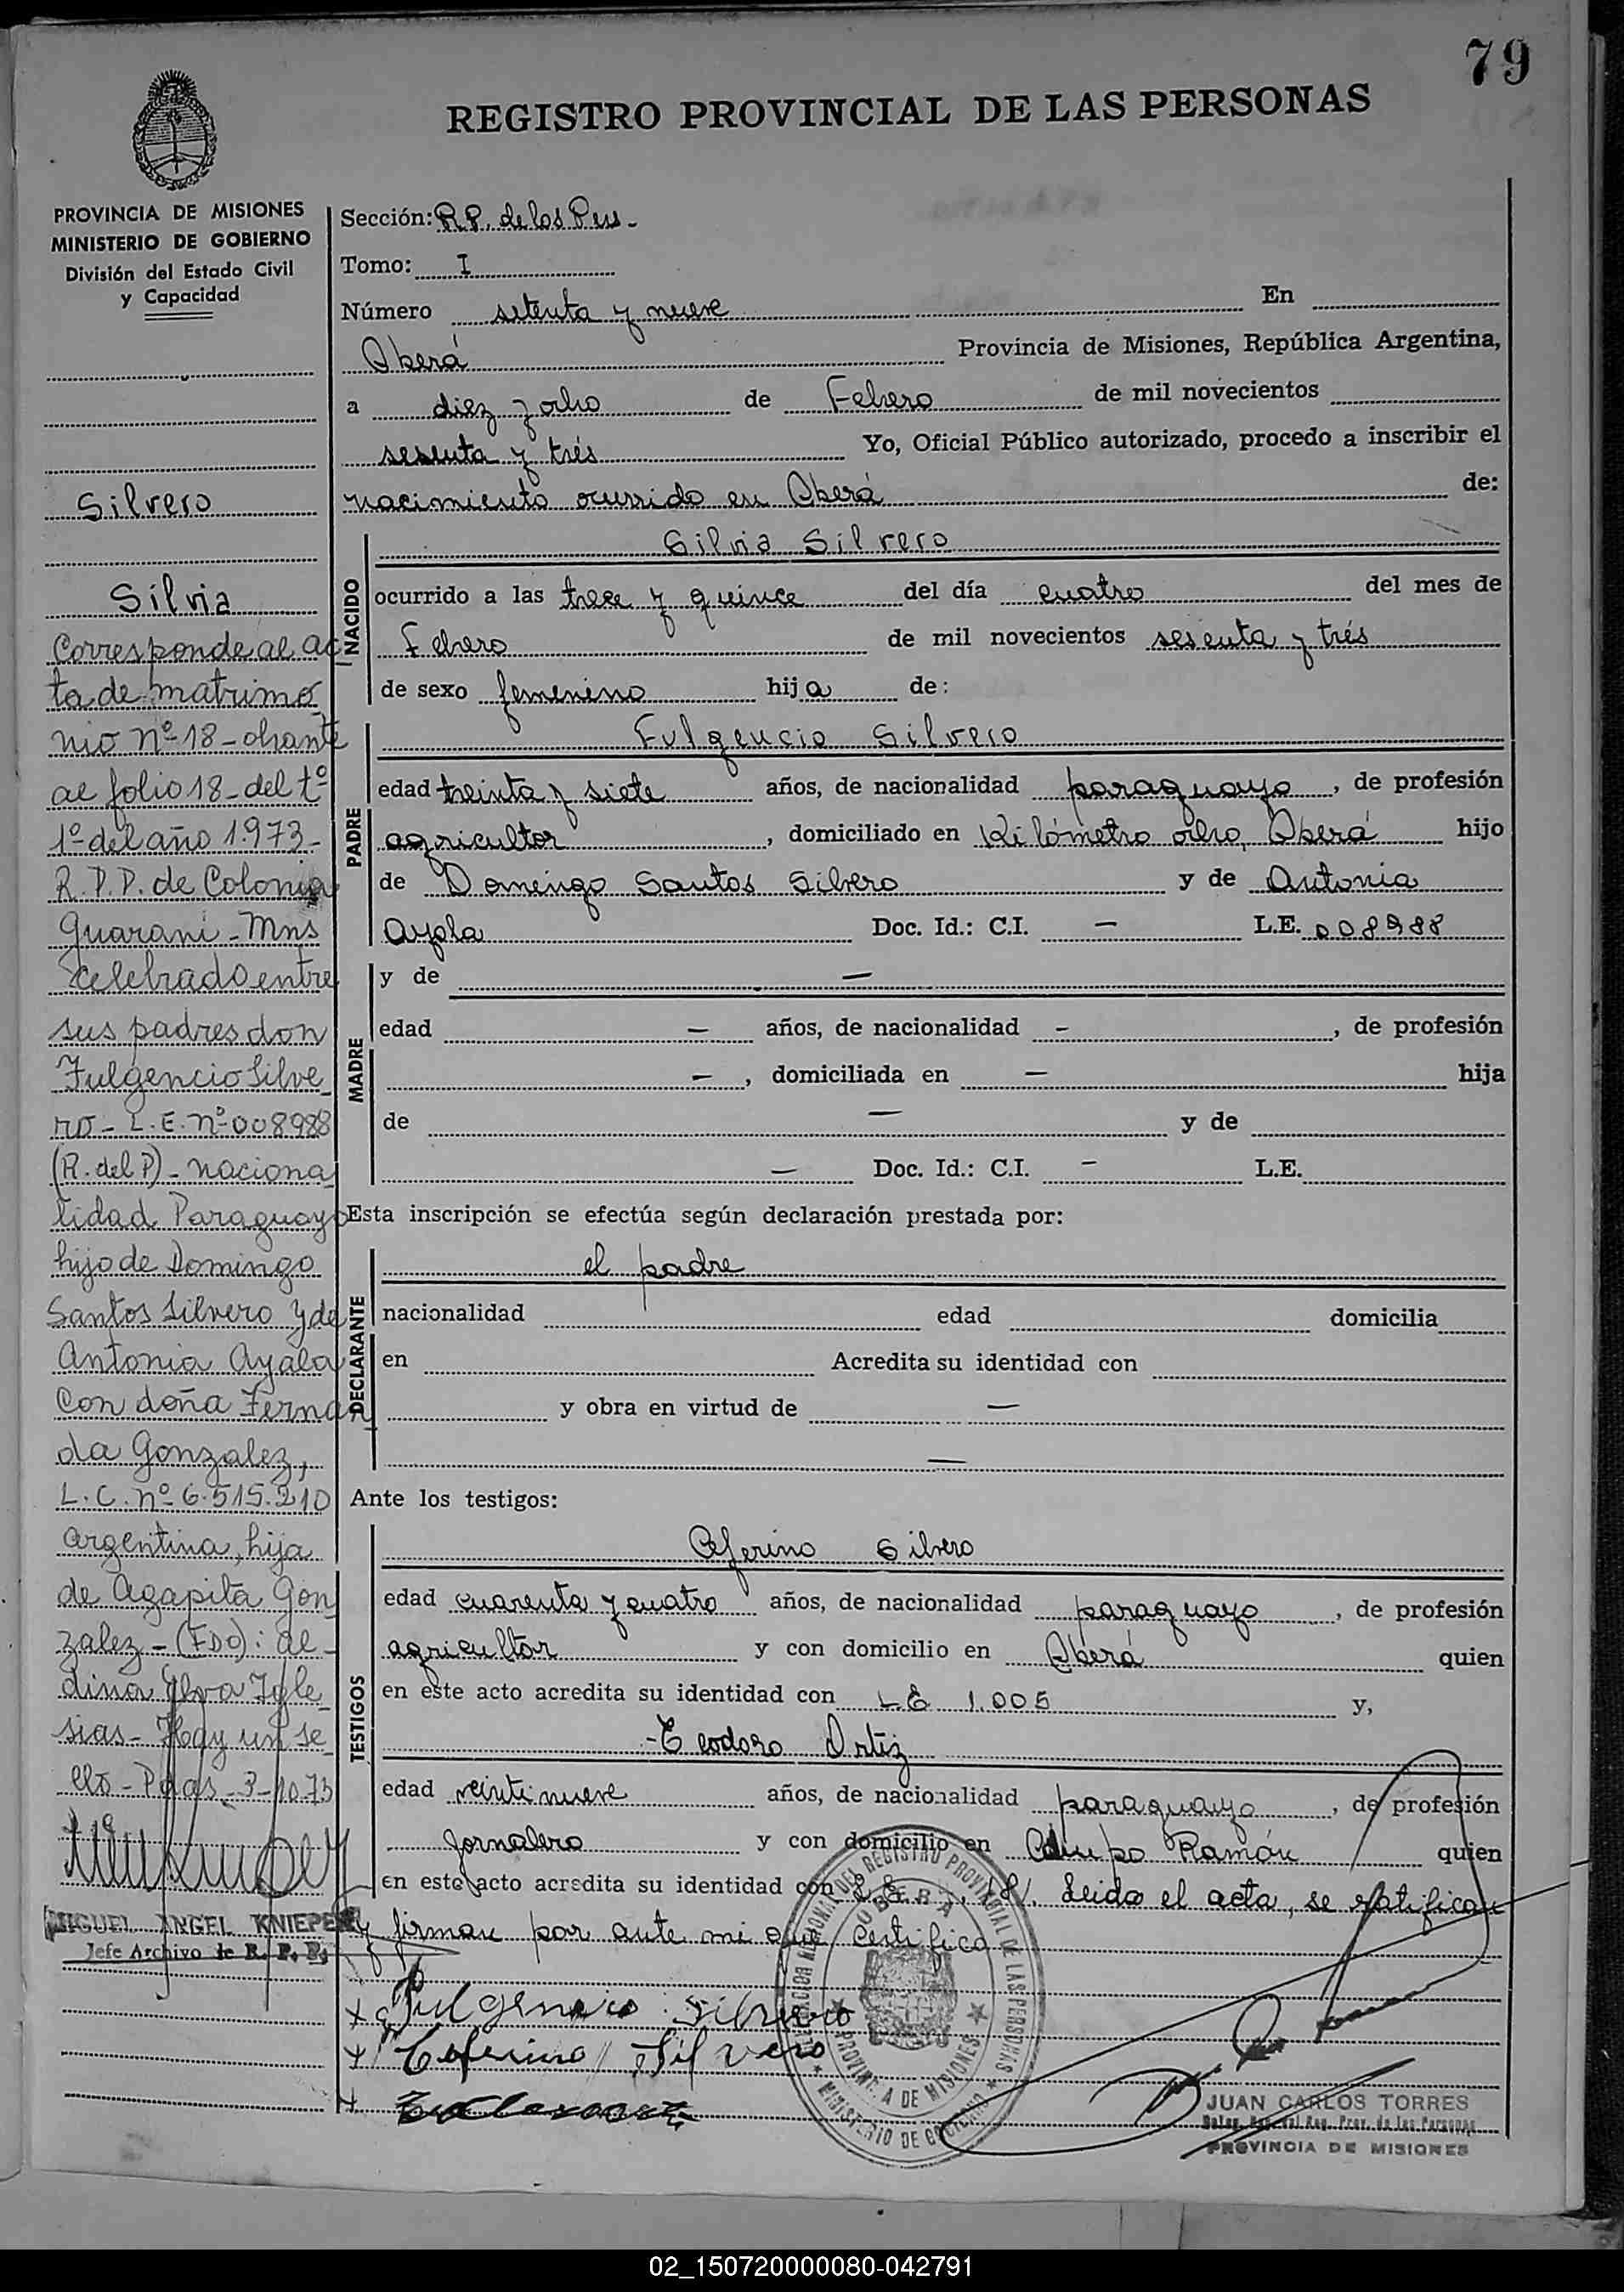 79
REGISTRO PROVINCIAL DE LAS PERSONAS
PROVINCIA DE MISIONES
MINISTERIO DE GOBIERNO
División del Estado Civil
y Capacidad
Silvero
Silvia
Corresponde al ac
ta de matrimo
nio nº 18 - obrante
al folio 18 - del tº
1º del año 1.973 -
R.P.P. de Colonia
Guarani - Mns
celebrado entre
sus padres don
Fulgencio Silve
ro - L.E. nº 008988
(R. del P) - naciona
lidad Paraguayo
hijo de Domingo
Santos Silvero y de
Antonia Ayala
Con doña Fernan
da Gonzalez,
L.C. nº 6.515.210
argentina, hija
de Agapita Gon
zalez - (FDO): Al
dina Igle
sias - Hay un se
llo - Pdas - 3-10-73
MIGUEL ANGEL KNIEPE
Jefe Archivo de R. P. P.
Sección: R.P. de las Pers -
Tomo: I
Número setenta y nueve En
Oberá Provincia de Misiones, República Argentina,
a diez y ocho de Febrero de mil novecientos
sesenta y trés Yo, Oficial Público autorizado, procedo a inscribir el
nacimiento ocurrido en Oberá de:
NACIDO
Silvia Silvero
ocurrido a las trece y quince del día cuatro del mes de
Febrero de mil novecientos sesenta y trés
de sexo femenino hija de:
PADRE
Fulgencio Silvero
edad treinta y siete años, de nacionalidad paraguayo, de profesión
agricultor, domiciliado en Kilómetro ocho, Oberá hijo
de Domingo Santos Silvero y de Antonia
Ayala Doc. Id.: C.I. — L.E. 008988
MADRE
y de —
edad — años, de nacionalidad —, de profesión
—, domiciliada en — hija
de — y de
— Doc. Id.: C.I. — L.E.
Esta inscripción se efectúa según declaración prestada por:
DECLARANTE
el padre
nacionalidad edad domicilia
en Acredita su identidad con
y obra en virtud de —
—
Ante los testigos:
TESTIGOS
Ceferino Silvero
edad cuarenta y cuatro años, de nacionalidad paraguayo, de profesión
agricultor y con domicilio en Oberá quien
en este acto acredita su identidad con LE 1.005 y,
- Teodoro Ortiz
edad veintinueve años, de nacionalidad paraguayo, de profesión
Jornalero y con domicilio en Campo Ramón quien
en este acto acredita su identidad con Leida el acta, se ratifican
y firman por ante mi que certifico
+ Fulgencio Silvero
+ Ceferino Silvero
+
DELEGACION REGIONAL DEL REGISTRO PROVINCIAL DE LAS PERSONAS
OBERA
PROVINCIA DE MISIONES
MINISTERIO DE GOBIERNO
JUAN CARLOS TORRES
Deleg. Reg. del Reg. Prov. de las Personas
PROVINCIA DE MISIONES
02_150720000080-042791